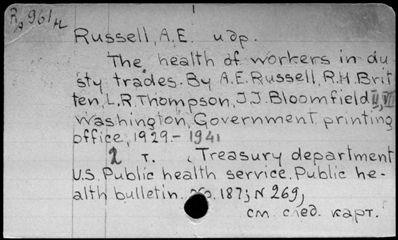 R 961
Russell, A.E. и др.
The health of workers in du
sty trades. By A.E. Russell, R.H. Brit
ten, L.R. Thompson, J.J. Bloomfield II, VII
Washington, Government printing
office, 1929.- 1941
2 т. , Treasury department
U.S. Public health service. Public he-
alth bulletin. No. 187; N 269,
см. след. карт.